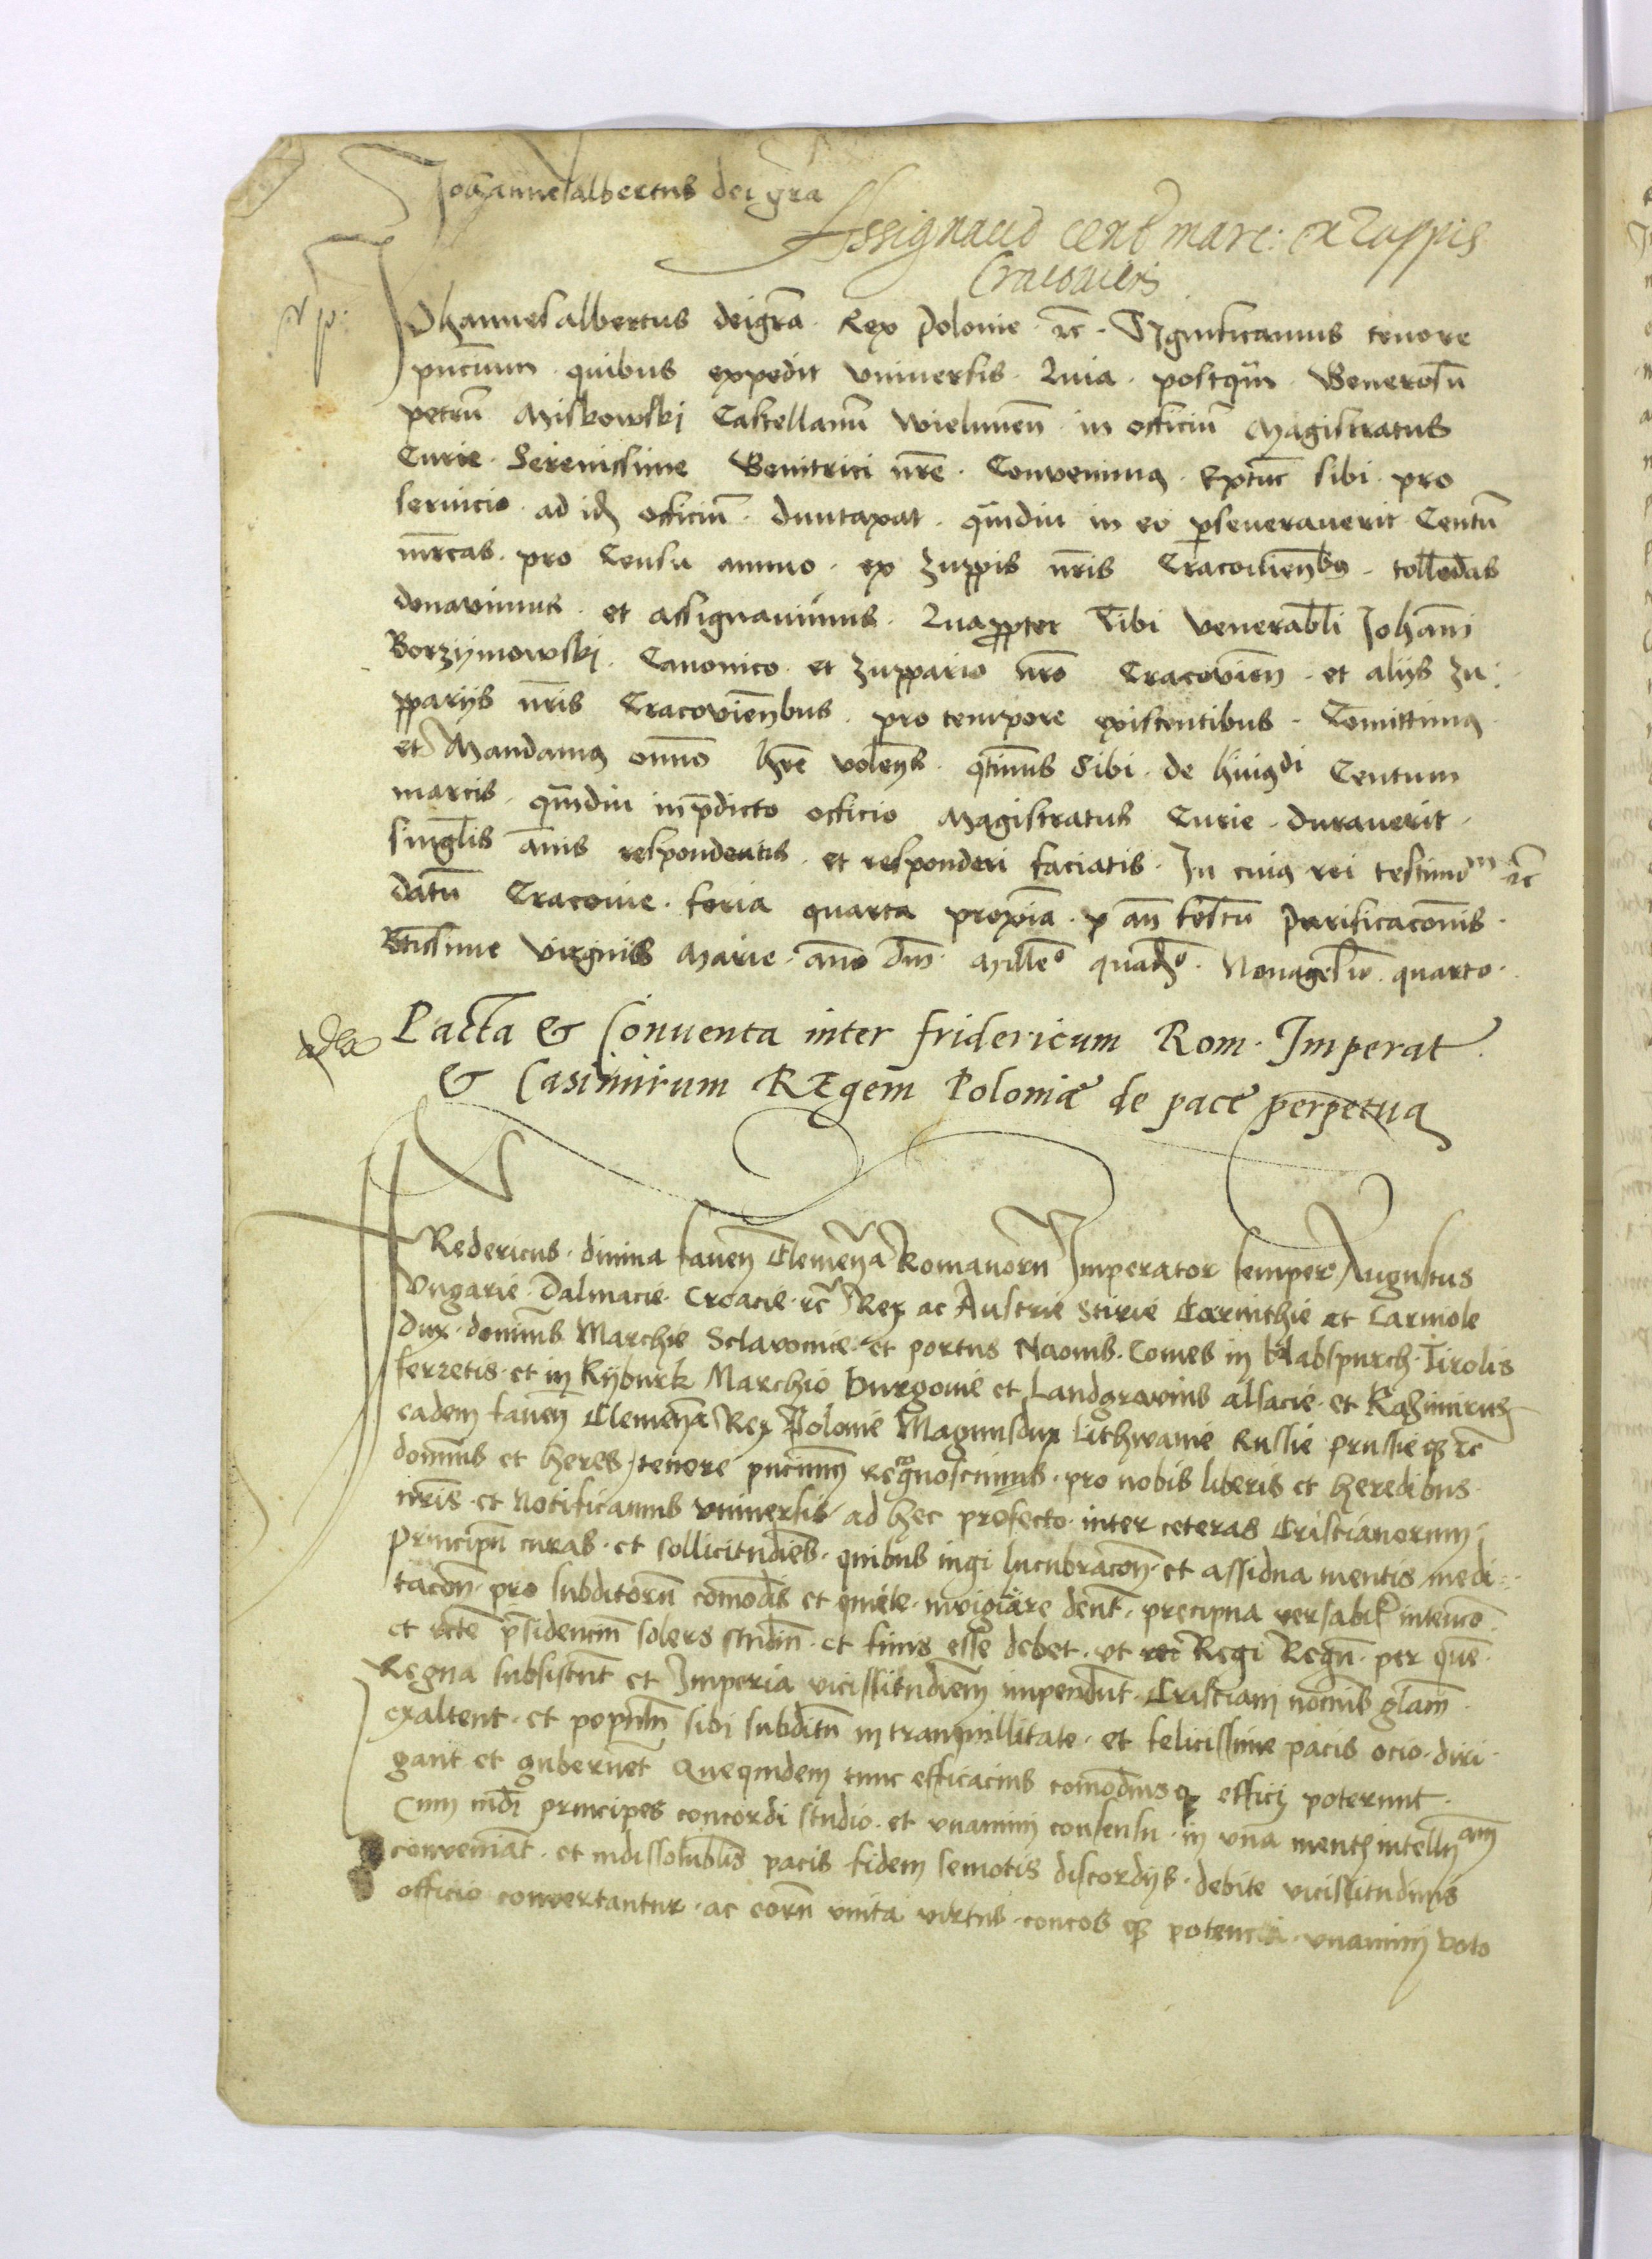 Johannesalbertus dei gra
Assignacio cent marc: ex Zuppis
Cracovien
Johannesalbertus deigra Rex Polonie rc Significamus tenore
pncium quibus expedit vniuersis Quia postqm Generosu
petru Miskowskj Castellanu wielunen in officiu Magistratus
Curie Serenissime Genitrici nre Convenimus Extunc sibi pro
seruicio ad id officiu duntaxat qmdiu in eo perseuerauerit Centu
mrcas pro Censu annuo ex zuppis nris Cracouienbus tolledas
donavimus et assignauimus Quappter Tibi Venerabli Johani
Borzymowskj Canonico et zuppario nro Cracovien et aliis zu
pparijs nris Cracovienbus pro tempore existentibus Comittimus
et Mandamus omno hre volens qtinus sibi de huiusdi Centum
marcis qmdiu inpdicto officio Magistratus Curie durauerit
singlis anis respondeatis et responderi faciatis In cuius rei testimom rc
datu Cracouie feria quarta proxia p an festu Purificaconis
Btissime Virginis Marie ano dni Milleo quadro Nonagesimo quarto
Pacta & Conuenta inter fridericum Rom. Imperat.
& Casimirum REgem Poloniæ de pace perpetua
FRedericus diuina fauen Clemena Romanoru Imperator semper Augustus
Vngarie Dalmacie Croacie rc Rex ac Austrie Stirie Carinthie et Carniole
dux dominus Marchie Sclavonice et portus Naonis Comes in Habspurch Tirolis
ferretis et in Kyburk Marchio Burgouie et Landgravius alsacie et Kazimirus
eadem fauen Clemena Rex Polonie Magnusdux Lithwanie Russie prussieqz rc
dominus et heres tenore pncium recognoscimus pro nobis liberis et heredibus
nris et Notificamus vniuersis ad hec profecto inter ceteras Cristianorum
Principu curas et sollicitudies quibus iugi lucubracon et assidua mentis medi
tacon pro subditoru comodis et quiete invigilare dent precipua versabitr intencio
et recte presidencium solers studiu et finis esse debet vt Regi Regn per que
Regna subsistunt et Imperia vicissitudiem impendut Cristiani nominis glam
exaltent et populum sibi subditu in tranquillitate et felicissime pacis ocio diri
gant et gubernet Quequidem tunc efficacius comodiusqz efficj poterunt
Cum mdi principes concordi studio et vnanimi consensu in vna mentis intellnam
conveniat et indissolublis pacis fidem semotis discordijs debite vicissitudinis
officio convertantur ac eoru vnita virtus concosqz potencia vnanimi voto